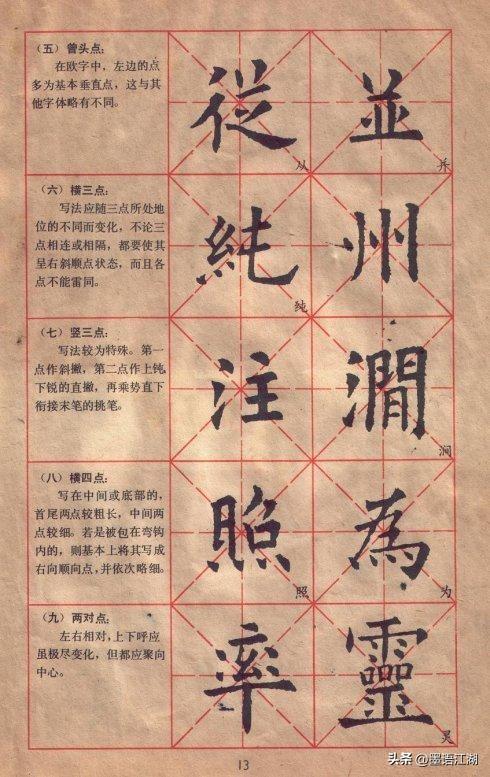 （五）曾头点：
在欧字中，左边的点
多为基本垂直点，这与其
他字体略有不同。
從
从
並
并
（六）横三点：
写法应随三点所处地
位的不同而变化，不论三
点相连或相隔，都要使其
呈右斜顺点状态，而且各
点不能雷同。
純
纯
州
（七）竖三点：
写法较为特殊。第一
点作斜撇，第二点作上钝
下锐的直撇，再乘势直下
衔接末笔的挑笔。
注
澗
涧
（八）横四点：
写在中间或底部的，
首尾两点较粗长，中间两
点较细。若是被包在弯钩
内的，则基本上将其写成
右向顺向点，并依次略细。
照
照
為
为
（九）两对点：
左右相对，上下呼应
虽极尽变化，但都应聚向
中心。
率
靈
灵
13
头条@墨语江湖